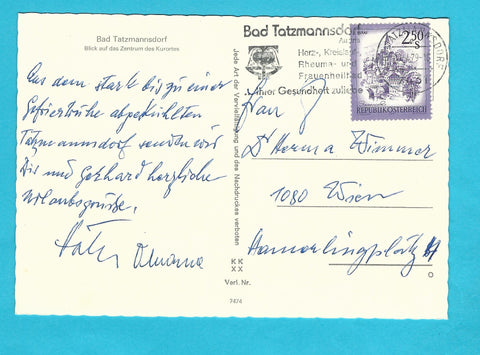 Bad Tatzmannsdorf
Blick auf das Zentrum des Kurortes
Aus dem stark bis zu einer
Gefriertruhe abgekühlten
Tatzmannsdorf senden wir
Dir und Gerhard herzliche
Urlaubsgrüße.
Jede Art der Vervielfältigung und des Nachdruckes verboten
KK
XX
Verl. Nr.
7474
Bad Tatzmannsdorf
Austria
Herz-, Kreislauf-
Rheuma- und
Frauenheilbad
Ihrer Gesundheit zuliebe
2.50
S
REPUBLIK ÖSTERREICH
Frau
Dr Herma Wimmer
1080 Wien
Hamerlingplatz